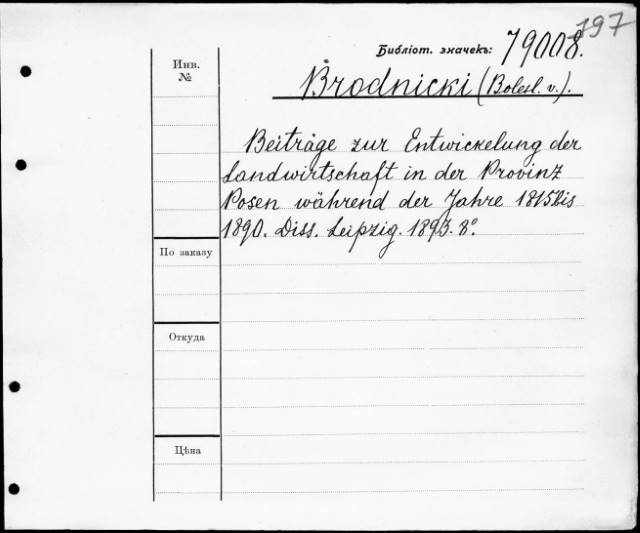 197
Библіот. значекъ: 79008.
Brodnicki (Bolesl. v.).
Beiträge zur Entwickelung der
Landwirtschaft in der Provinz
Posen während der Jahre 1815 bis
1890. Diss. Leipzig. 1893. 8°.
Инв.
№
По заказу
Откуда
Цѣна